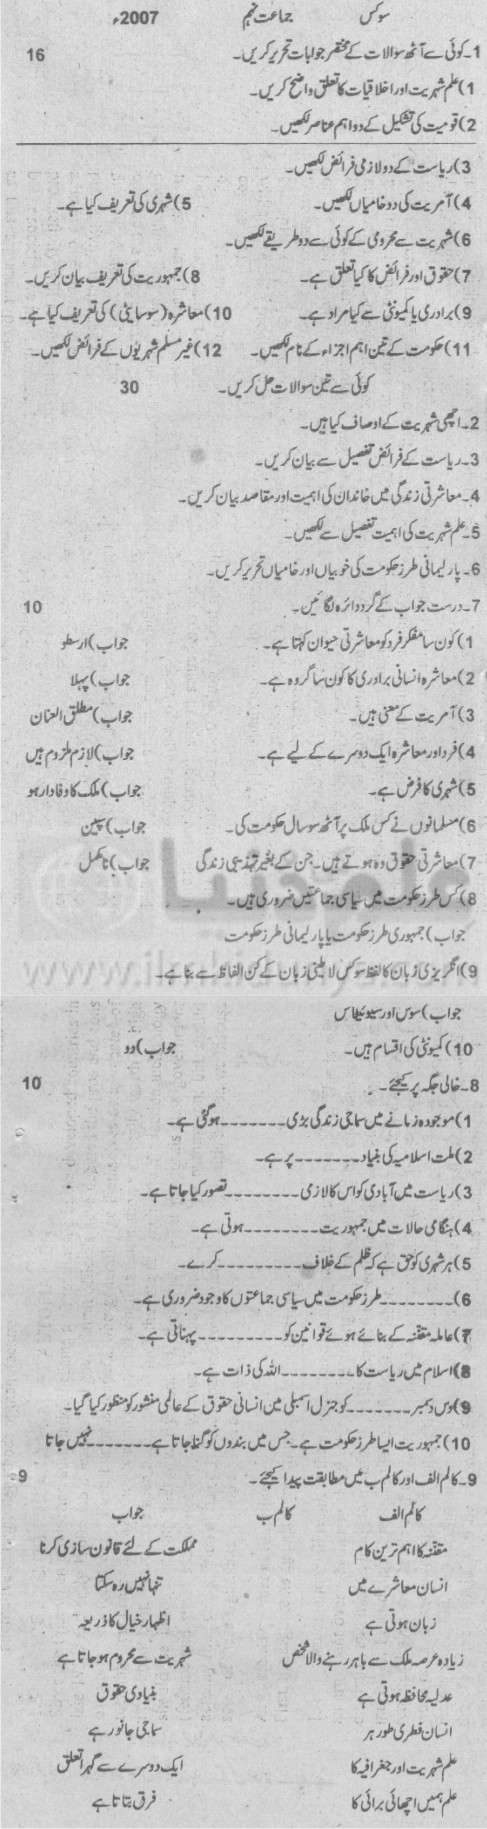 سوکس جماعت نہم 2007ء
1۔کوئی سے آٹھ سوالات کے مختصر جوابات تحریر کریں۔ 16
1)علم شہریت اور اخلاقیات کا تعلق واضح کریں۔
2)قومیت کی تشکیل کے دو اہم عناصر لکھیں۔
3)ریاست کے دو لازمی فرائض لکھیں۔
4)آمریت کی دو خامیاں لکھیں۔ 5)شہری کی تعریف کیا ہے۔
6)شہریت سے محرومی کے کوئی سے دو طریقے لکھیں۔
7)حقوق اور فرائض کا کیا تعلق ہے۔ 8)جمہوریت کی تعریف بیان کریں۔
9)برادری یا کمیونٹی سے کیا مراد ہے۔ 10)معاشرہ(سوسائٹی) کی تعریف کیا ہے۔
11)حکومت کے تین اہم اجزاء کے نام لکھیں۔ 12)غیر مسلم شہریوں کے فرائض لکھیں۔
کوئی سے تین سوالات حل کریں۔ 30
2۔اچھی شہریت کے اوصاف کیا ہیں۔
3۔ریاست کے فرائض تفصیل سے بیان کریں۔
4۔معاشرتی زندگی میں خاندان کی اہمیت اور مقاصد بیان کریں۔
5۔علم شہریت کی اہمیت تفصیل سے لکھیں۔
6۔پارلیمانی طرز حکومت کی خوبیاں اور خامیاں تحریر کریں۔
7۔درست جواب کے گرد دائرہ لگائیں۔ 10
1)کون سا مفکر فرد کو معاشرتی حیوان کہتا ہے۔ جواب)ارسطو
2)معاشرہ انسانی برادری کا کون سا گروہ ہے۔ جواب)پہلا
3)آمریت کے معنی ہیں۔ جواب)مطلق العنان
4)فرد اور معاشرہ ایک دوسرے کے لیے ہے۔ جواب)لازم ملزوم ہیں
5)شہری کا فرض ہے۔ جواب)ملک کا وفادار ہو
6)مسلمانوں نے کس ملک پر آٹھ سو سال حکومت کی۔ جواب)سپین
7)معاشرتی حقوق وہ ہوتے ہیں۔جن کے بغیر تہذیبی زندگی جواب)نامکمل
8)کس طرز حکومت میں سیاسی جماعتیں ضروری ہیں۔
جواب)جمہوری طرز حکومت یا پارلیمانی طرز حکومت
www.ilmkidunya.com
9)انگریزی زبان کا لفظ سوکس لاطینی زبان کے کن الفاظ سے بنا ہے۔
جواب)سوس اور سیویٹاس
10)کمیونٹی کی اقسام ہیں۔ جواب)دو
8۔خالی جگہ پر کیجئے۔ 10
1)موجودہ زمانے میں سماجی زندگی بڑی--------ہو گئی ہے۔
2)ملت اسلامیہ کی بنیاد--------پر ہے۔
3)ریاست میں آبادی کو اس کا لازمی--------تصور کیا جاتا ہے۔
4)ہنگامی حالات میں جمہوریت--------ہوتی ہے۔
5)ہر شہری کو حق ہے کہ ظلم کے خلاف---------کرے۔
6)--------طرز حکومت میں سیاسی جماعتوں کا وجود ضروری ہے۔
7)عاملہ مقننہ کے بنائے ہوئے قوانین کو---------پہناتی ہے۔
8)اسلام میں ریاست کا--------اللہ کی ذات ہے۔
9)دس دسمبر-------کو جنرل اسمبلی میں انسانی حقوق کے عالمی منشور کو منظور کیا گیا۔
10)جمہوریت ایسا طرز حکومت ہے۔جس میں بندوں کو گنا جاتا ہے-------نہیں جاتا
9۔کالم الف اور کالم ب میں مطابقت پیدا کیجئے۔ 9
کالم الف کالم ب جواب
مقننہ کا اہم ترین کام مملکت کے لئے قانون سازی کرنا
انسان معاشرے میں تنہا نہیں رہ سکتا
زبان ہوتی ہے اظہار خیال کا ذریعہ
زیادہ عرصہ ملک سے باہر رہنے والا شخص شہریت سے محروم ہو جاتا ہے
عدلیہ محافظ ہوتی ہے بنیادی حقوق
انسان فطری طور ہر سماجی جانور ہے
علم شہریت اور جغرافیہ کا ایک دوسرے سے گہرا تعلق
علم ہمیں اچھائی برائی کا فرق بتاتا ہے